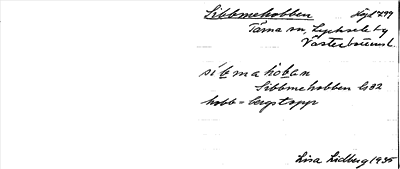 Sibbmehobben Höjd 799
Tärna sn, Lycksele by
Västerbottens l.
síbmahoban
Sibbmehobben Gs32
hobb = bergstopp
Lisa Lidberg 1935